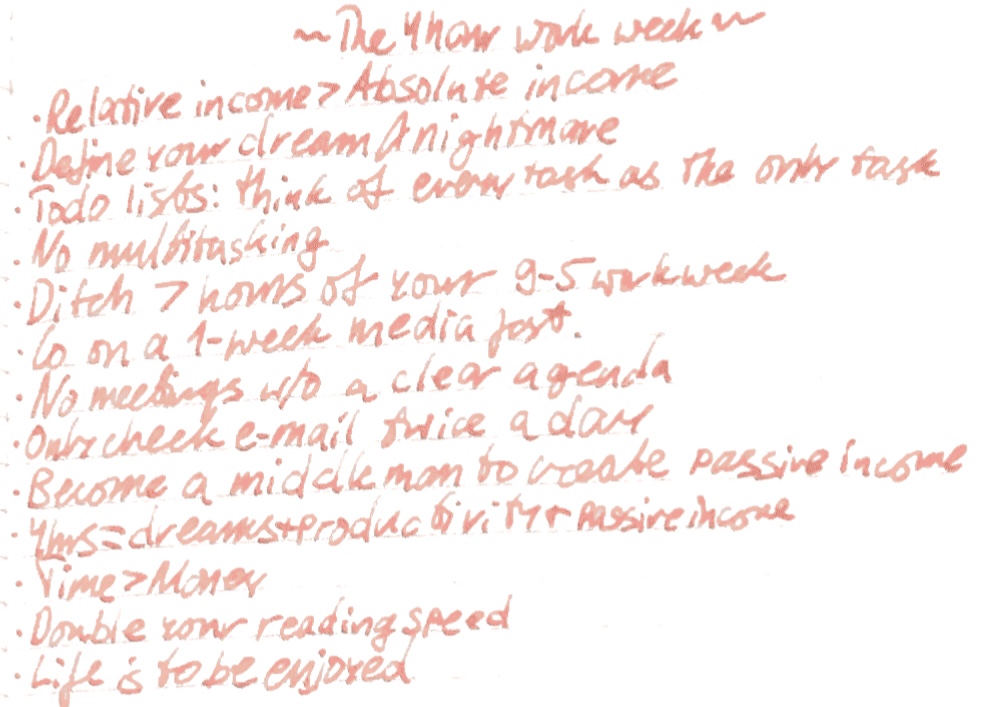 ~The 4 hour work week~
·Relative income>Absolute income
·Define your dream & nightmare
·Todo lists: think of every task as the only task
·No multitasking
·Ditch 7 hours of your 9-5 workweek
·Go on a 1-week media fast.
·No meetings w/o a clear agenda
·Only check e-mail twice a day
·Become a middle man to create passive income
·4hrs=dreams+productivity+passive income
·Time>Money
·Double your reading speed
·Life is to be enjoyed